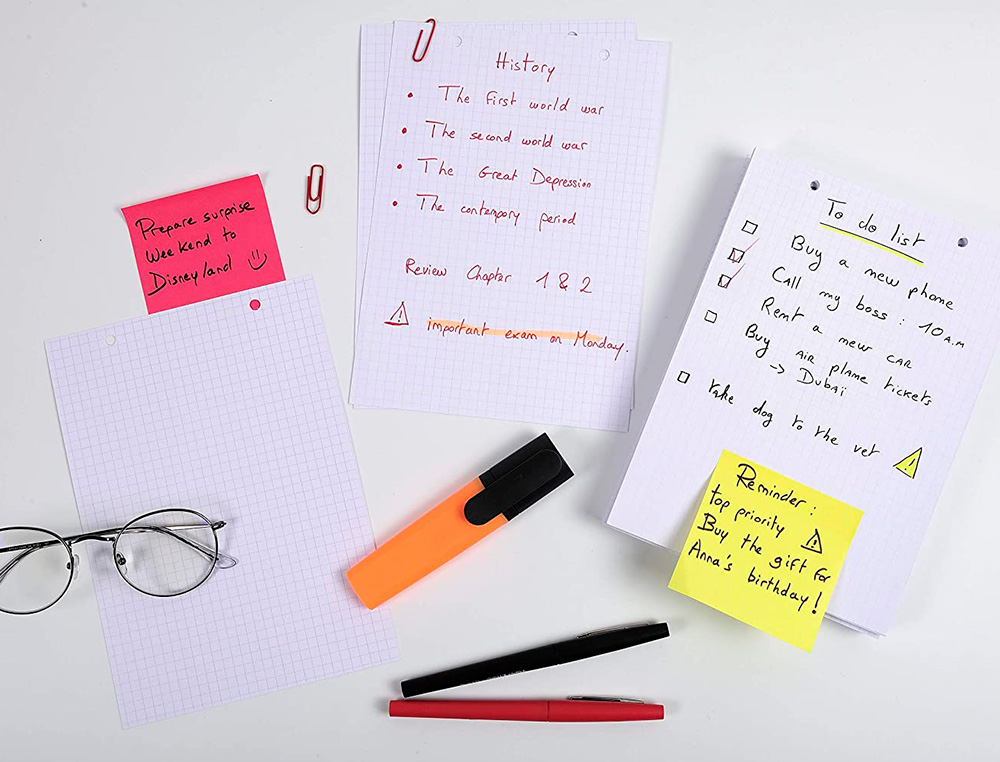 Prepare surprise
Weekend to
Disneyland
History
• The first world war
• The second world war
• The Great Depression
• The contempory period
Review Chapter 1 & 2
important exam on Monday.
To do list
Buy a new phone
Call my boss : 10 A.M
Rent a new CAR
Buy AIR plane tickets
-> Dubaï
take dog to the vet
Reminder :
top priority
Buy the gift for
Anna's birthday !